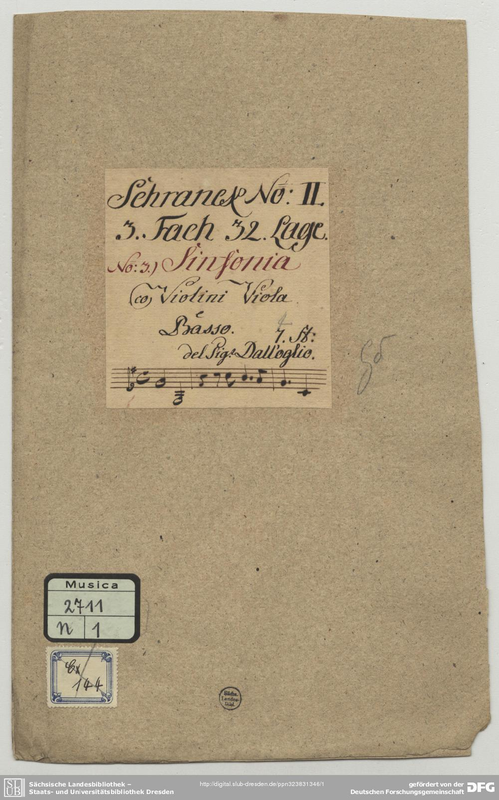 Schranck No: II.
3. Fach 32. Lage.
No: 3.) Sinfonia
(co) Violini Viola
è Basso. 7. St:
del Sigr. Dall'oglio.
Musica
2711
N 1
Cx
144
Sächs.
Landes-
Bibl.
Sächsische Landesbibliothek –
Staats- und Universitätsbibliothek Dresden
http://digital.slub-dresden.de/ppn323831346/1
gefördert von der
Deutschen Forschungsgemeinschaft
DFG